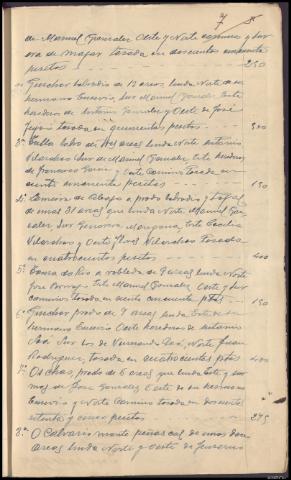 7
de Manuel Gonzalez Oeste y Norte camino y Sur
era de majar tasada en doscientas cincuenta
pesetas - - - 250
labradio de 12 areas, linda Norte de su
hermano Eucerio, Sur Manuel Gonzalez Este
herederos de Antonio Gonzalez y Oeste de José
tasada en quinientas pesetas - - - 500
3ª lobo de tres areas linda Norte Antonio
Vilariños Sur de Manuel Gonzalez Este herederos
de Francisco y Oeste Camino tasada en
ciento cincuenta pesetas - - - 150
4ª de Abajo a prado labradio y tojal
de unas 31 areas que linda Norte Manuel Gon-
zalez, Sur Este Cecilia
Vilariños y Oeste Vilariños tasada
en cuatrocientas pesetas - - - 400
5ª do Rio a robleda de 9 areas linda Norte
José Este Manuel Gonzalez Oeste y Sur
caminos tasada en ciento cincuenta ptas - 150
6ª prado de 9 areas linda Este de su
hermano Eucerio Oeste herederos de Antonio
Sur los de Norte Juan
Rodriguez, tasada en cuatrocientas ptas 400
7ª Os chas, prado de 6 areas que linda Este y Sur
mas de José Gonzalez Oeste de su hermano
Eucerio y Norte Camino tasada en doscientas
setenta y cinco pesetas - - - 275
8ª O Calvario monte peñascal de unas dos
areas linda Norte y Oeste de